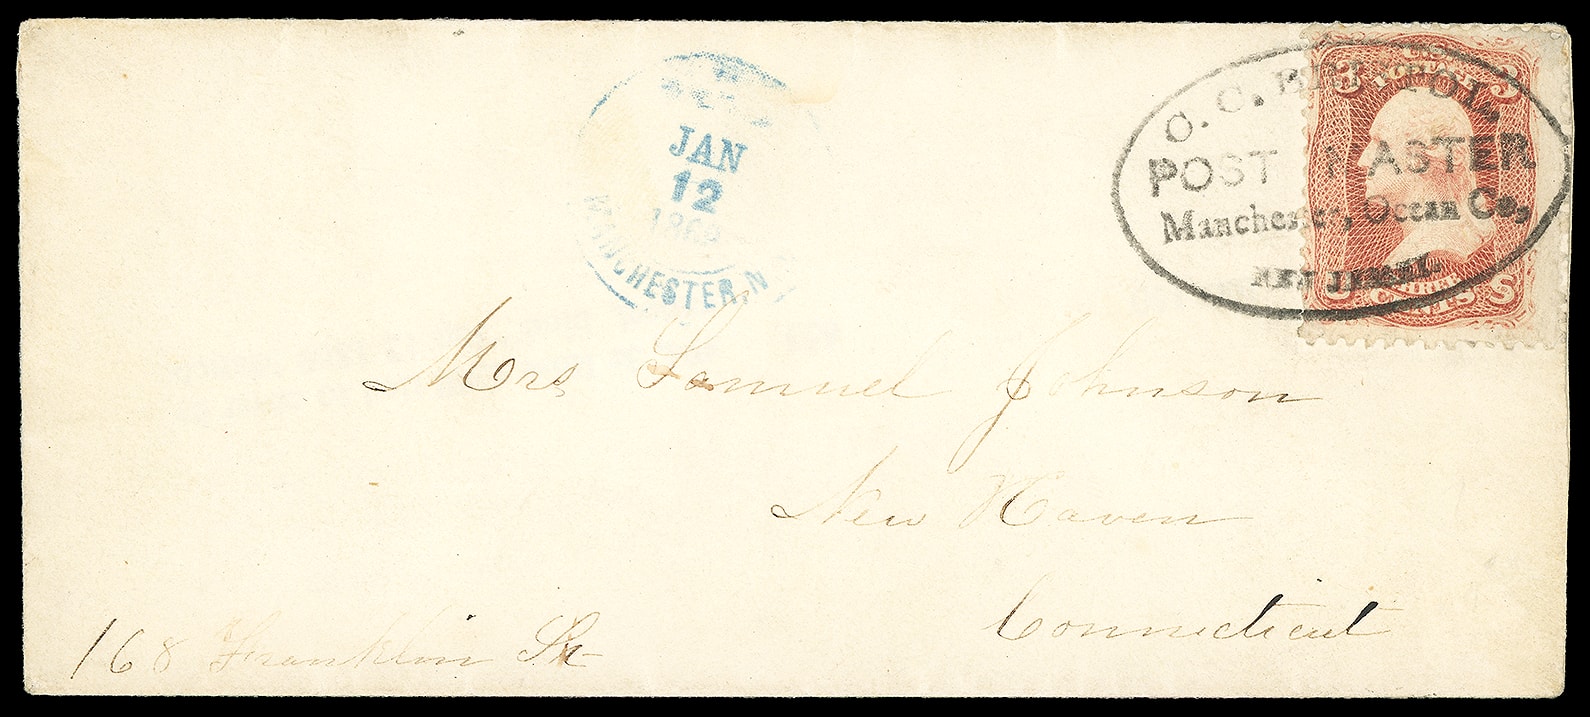 JAN
12
MANCHESTER N
C. C.
POST MASTER
Manchester, Ocean Co,
NEW JERSEY.
3 3
CENTS
Mrs Samuel Johnson
New Haven
Connecticut
168 Franklin St